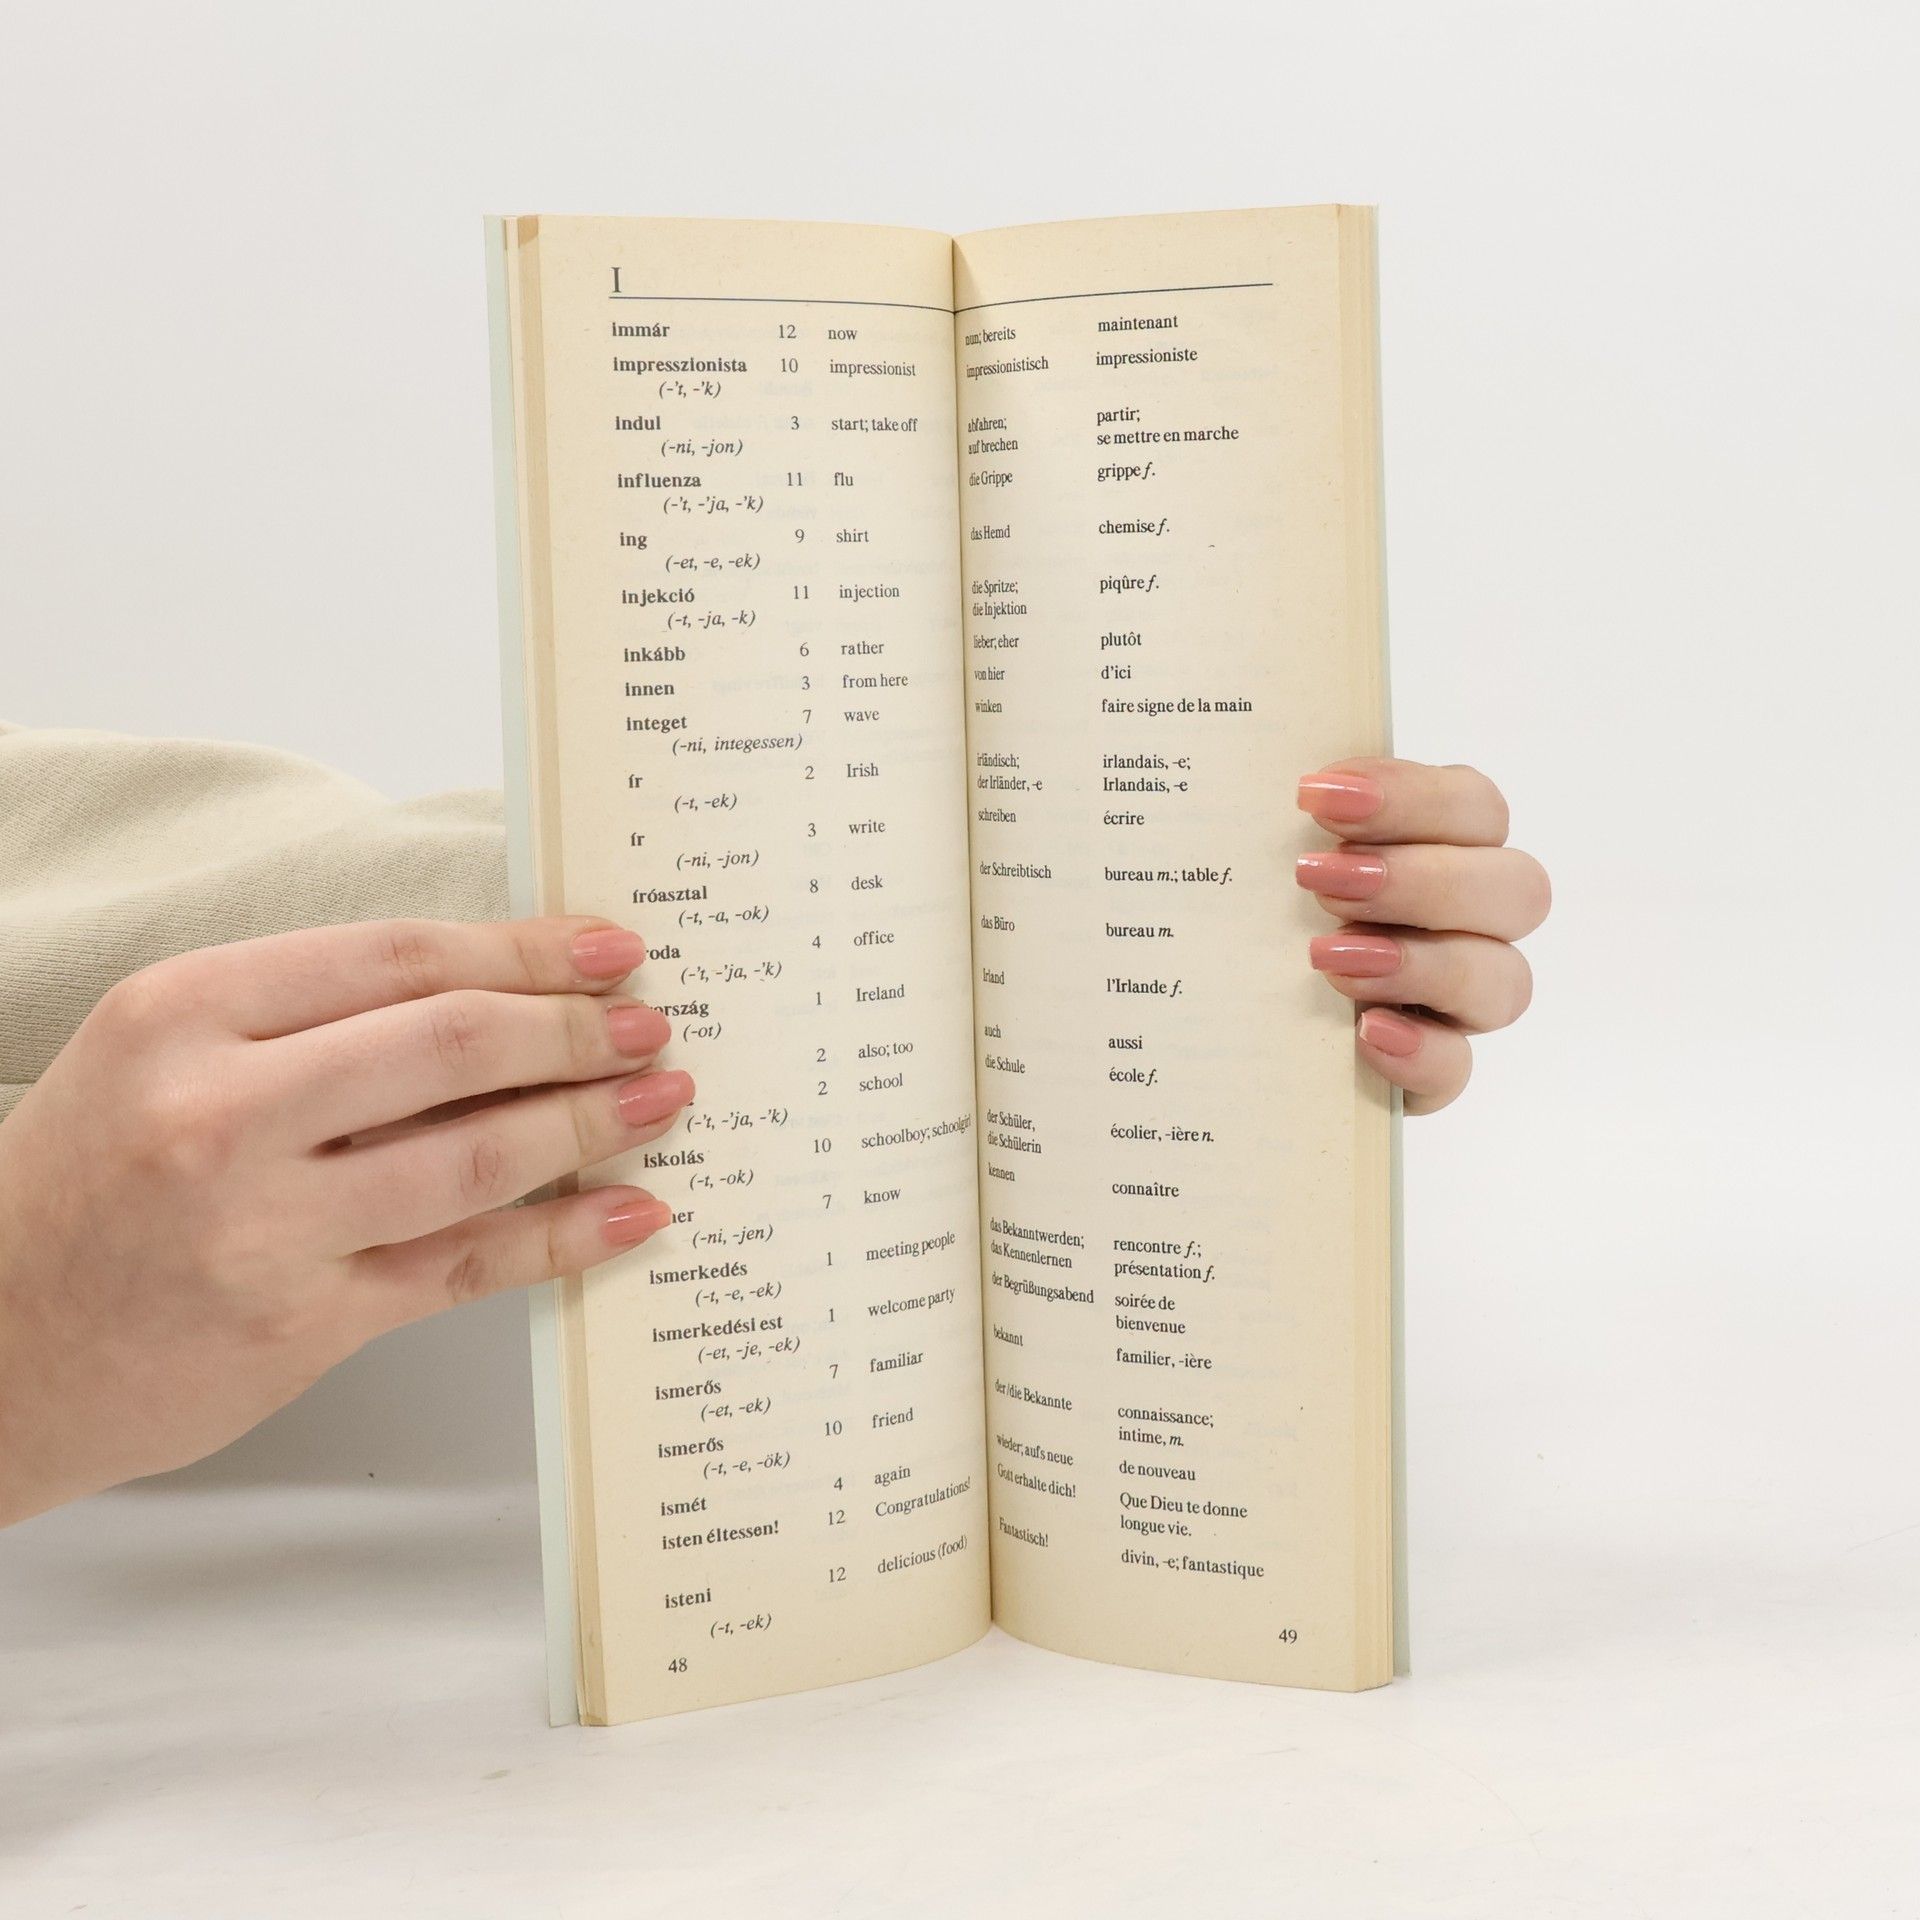 I
immár 12 now
impresszionista 10 impressionist
(-’t, -’k)
indul 3 start; take off
(-ni, -jon)
influenza 11 flu
(-’t, -’ja, -’k)
ing 9 shirt
(-et, -e, -ek)
injekció 11 injection
(-t, -ja, -k)
inkább 6 rather
innen 3 from here
integet 7 wave
(-ni, integessen)
ír 2 Irish
(-t, -ek)
ír 3 write
(-ni, -jon)
íróasztal 8 desk
(-t, -a, -ok)
roda 4 office
(-’t, -’ja, -’k)
ország 1 Ireland
(-ot)
2 also; too
2 school
(-’t, -’ja, -’k)
iskolás 10 schoolboy; schoolgirl
(-t, -ok)
er 7 know
(-ni, -jen)
ismerkedés 1 meeting people
(-t, -e, -ek)
ismerkedési est 1 welcome party
(-et, -je, -ek)
ismerős 7 familiar
(-et, -ek)
ismerős 10 friend
(-t, -e, -ök)
ismét 4 again
isten éltessen! 12 Congratulations!
isteni 12 delicious (food)
(-t, -ek)
48
nun; bereits maintenant
impressionistisch impressioniste
abfahren; partir;
aufbrechen se mettre en marche
die Grippe grippe f.
das Hemd chemise f.
die Spritze; piqûre f.
die Injektion
lieber; eher plutôt
von hier d’ici
winken faire signe de la main
irländisch; irlandais, -e;
der Irländer, -e Irlandais, -e
schreiben écrire
der Schreibtisch bureau m.; table f.
das Büro bureau m.
Irland l’Irlande f.
auch aussi
die Schule école f.
der Schüler, écolier, -ière n.
die Schülerin
kennen connaître
das Bekanntwerden; rencontre f.;
das Kennenlernen présentation f.
der Begrüßungsabend soirée de
bienvenue
bekannt familier, -ière
der/die Bekannte connaissance;
intime, m.
wieder; aufs neue de nouveau
Gott erhalte dich! Que Dieu te donne
longue vie.
Fantastisch! divin, -e; fantastique
49